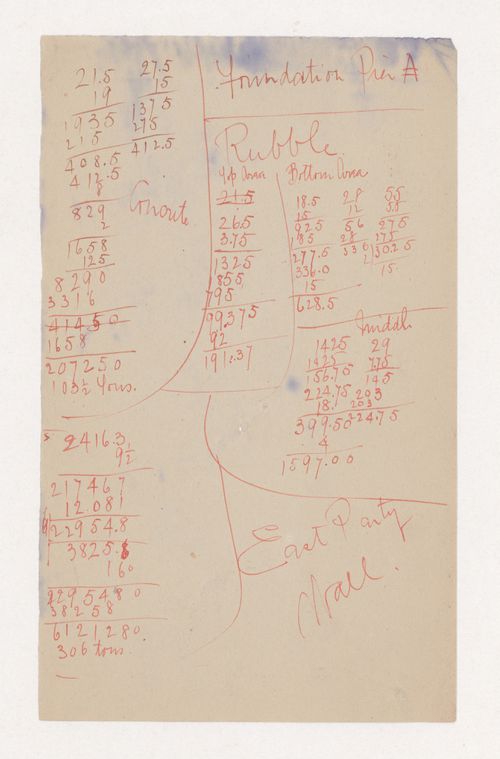 Foundation Pier A
21.5 27.5
19 15
1935 1375
215 275
408.5 412.5
412.5
8
829
2
Concrete
1658
125
8290
3316
41450
1658
207250
103½ Tons.
Rubble
Top Area Bottom Area
21.5
26.5
3.75
1325
855
795
99.375
92
191.37
18.5 28 55
15 12 5.5
925 56 275
185 28 275
277.5 336 30.25
336.0 2 15
15
628.5
Middle
1425 29
1425 7.75
156.75 145
224.75 203
18. 203
399.50 224.75
4
1597.00
2416.3
9½
217467
12.081
22954.8
3825.8
160
2295480
38258
6121280
306 tons.
East Party
Wall.